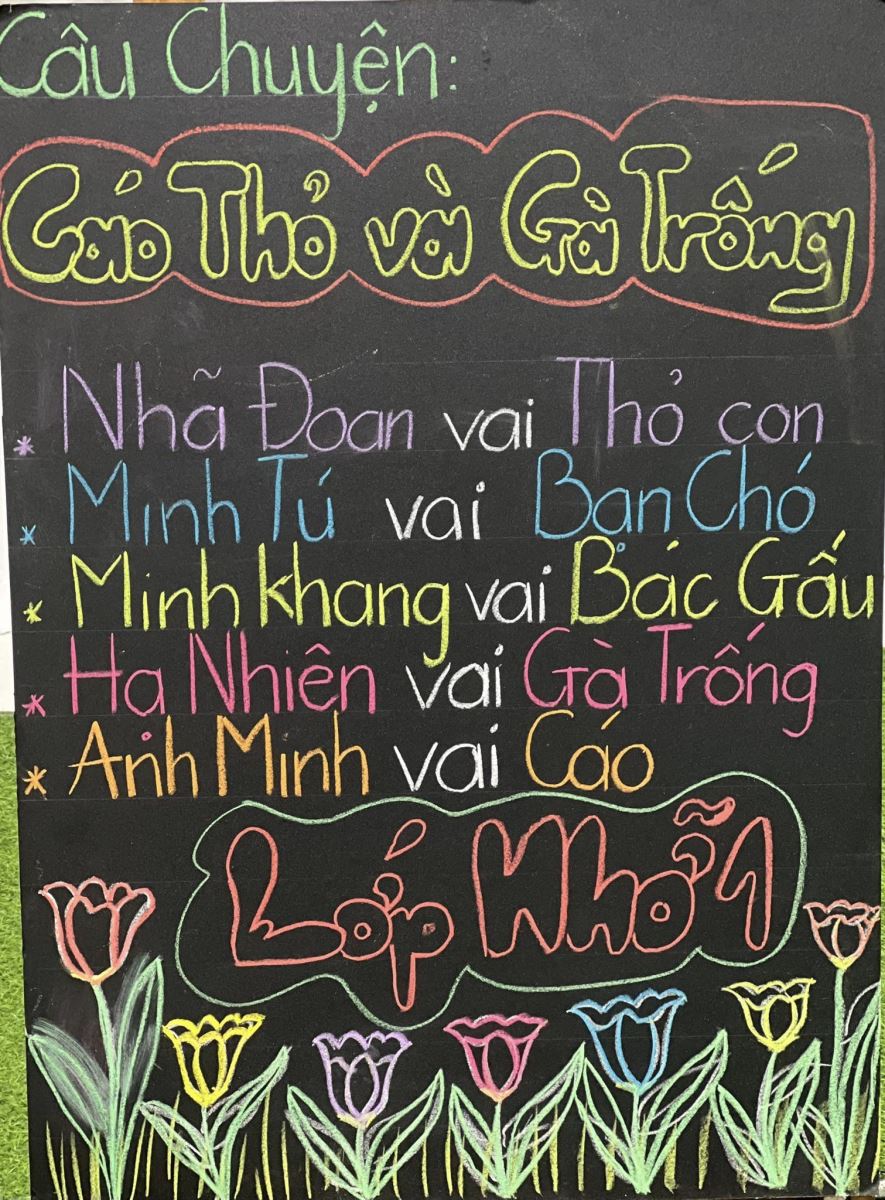 Câu Chuyện:
Cáo Thỏ và Gà Trống
* Nhã Đoan vai Thỏ con
* Minh Tú vai Bạn Chó
* Minh Khang vai Bác Gấu
* Hạ Nhiên vai Gà Trống
* Ánh Minh vai Cáo
Lớp Nhỡ 1